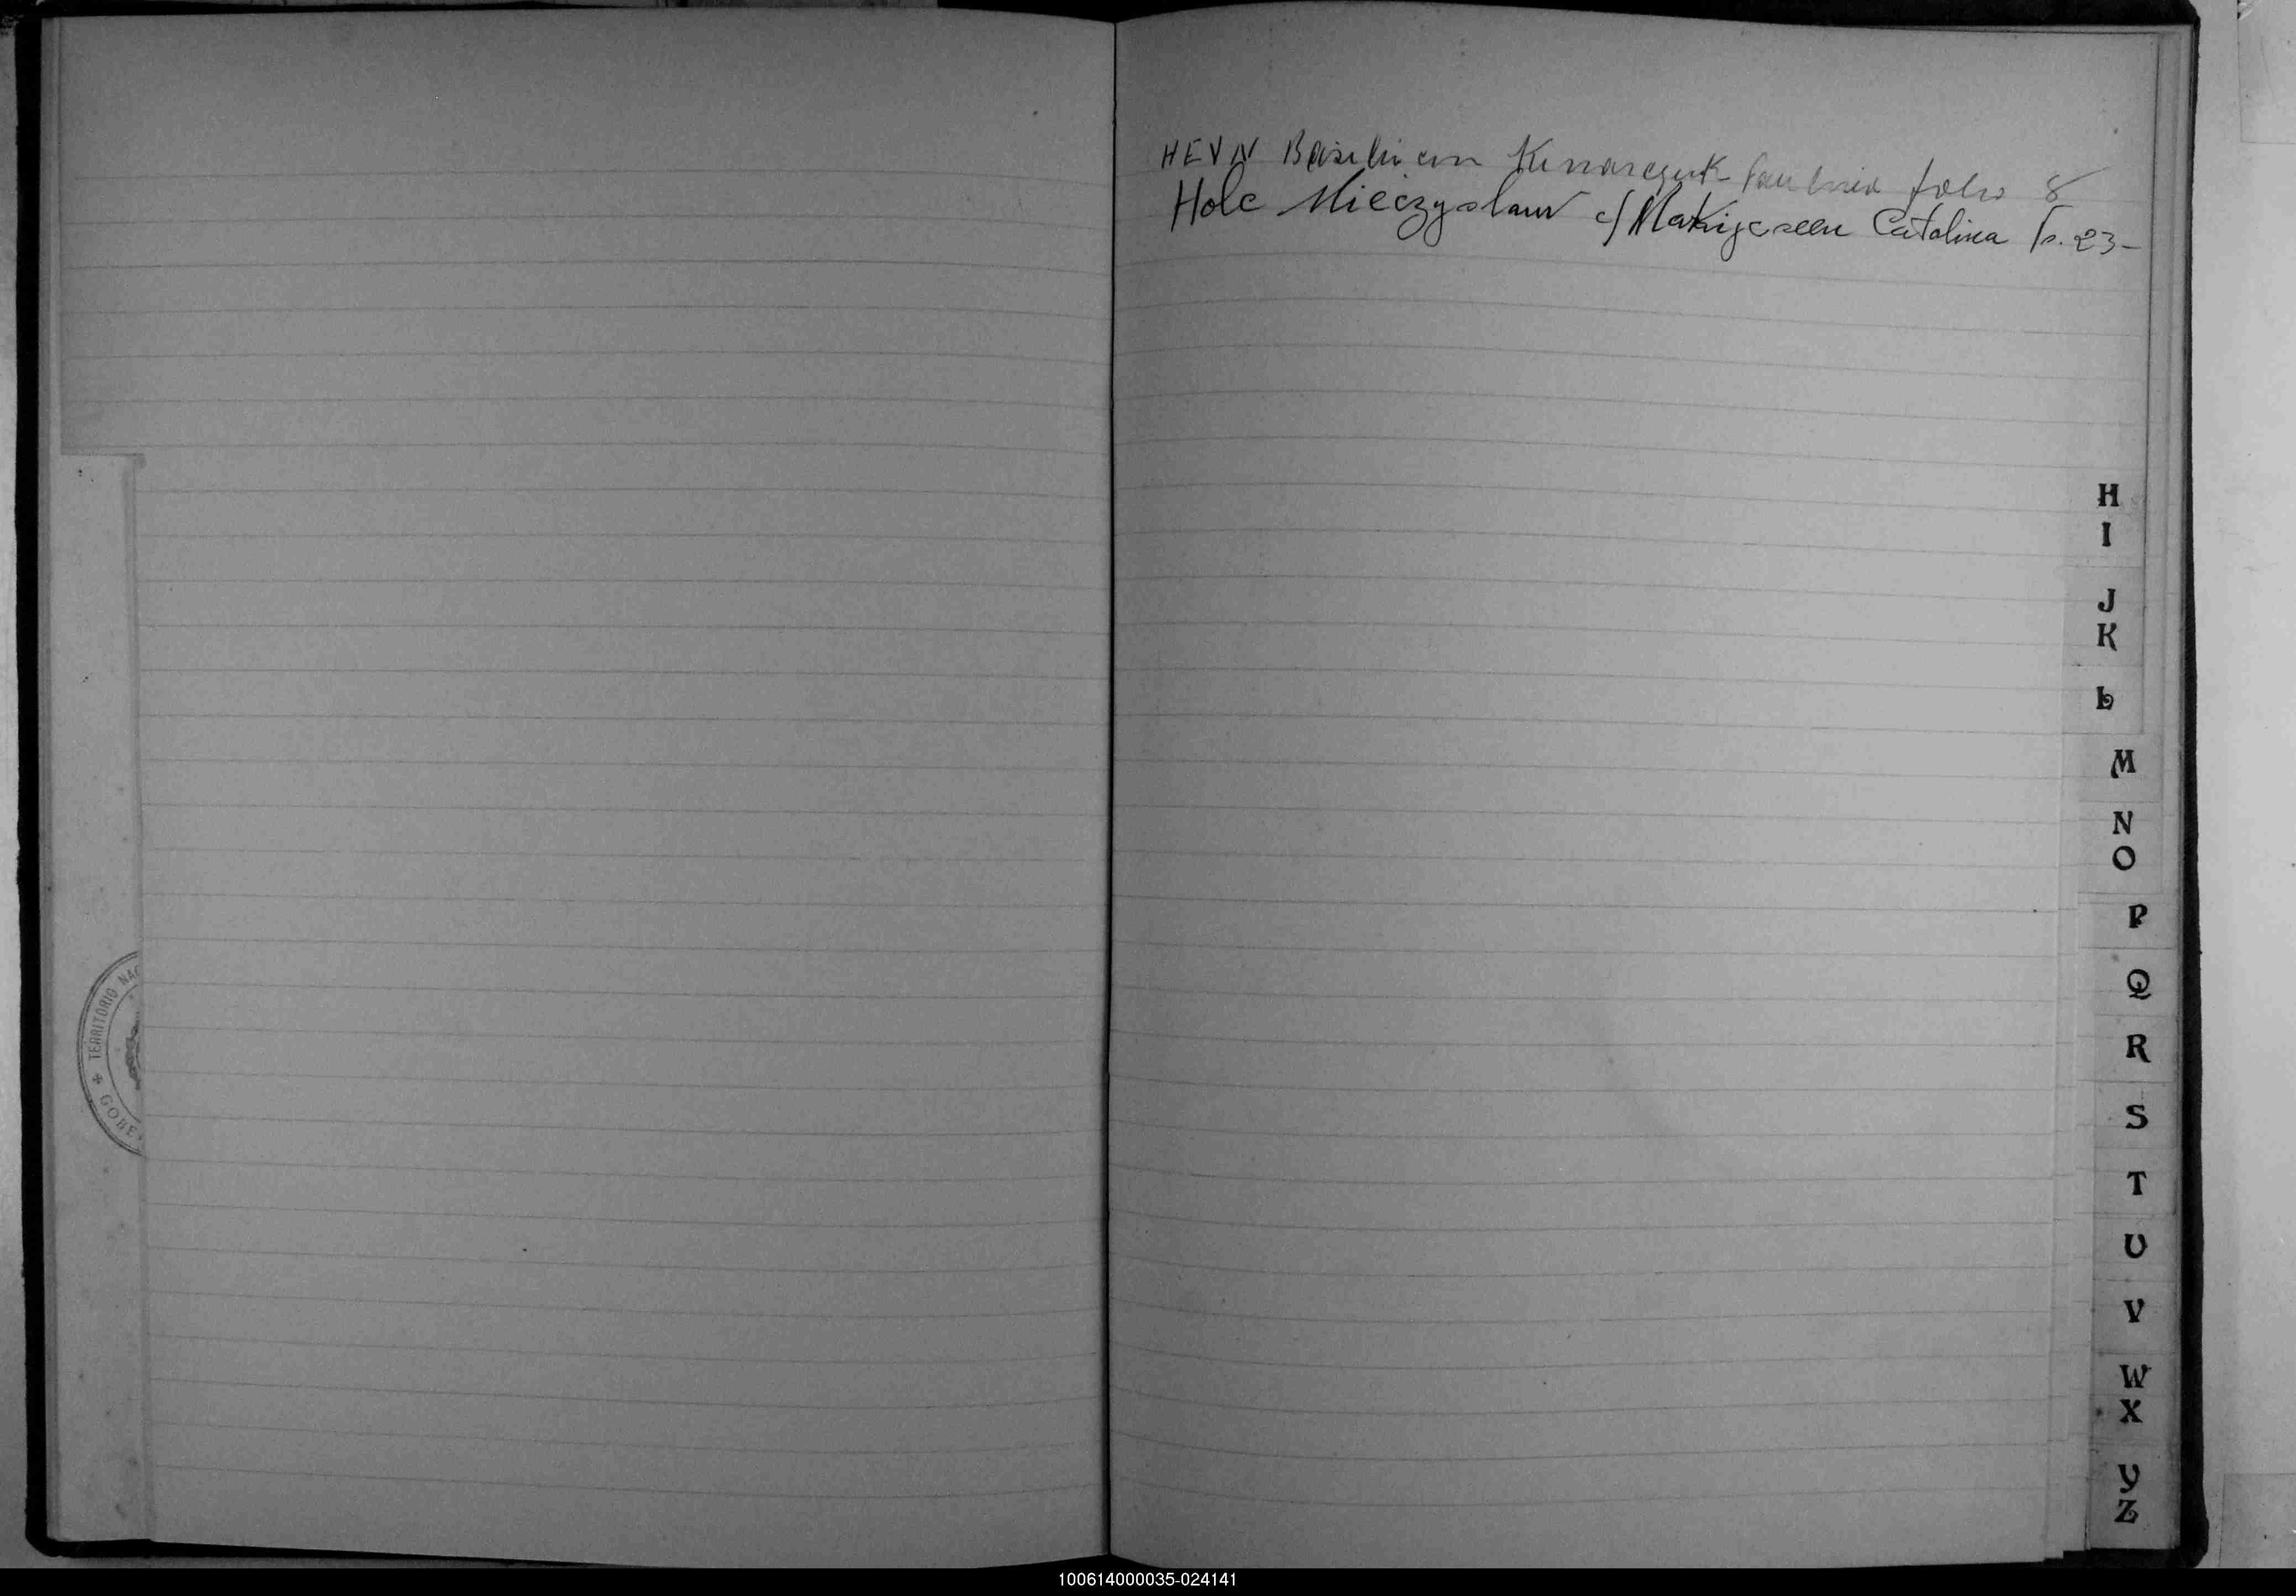 HEVN Basilio con Kunarczuk Paulina folio 8
Holc Mieczyslaw c/ Catalina Fo. 23-
H
I
J
K
L
M
N
O
P
Q
R
S
T
U
V
W
X
Y
Z
TERRITORIO NAC
GOBE
100614000035-024141